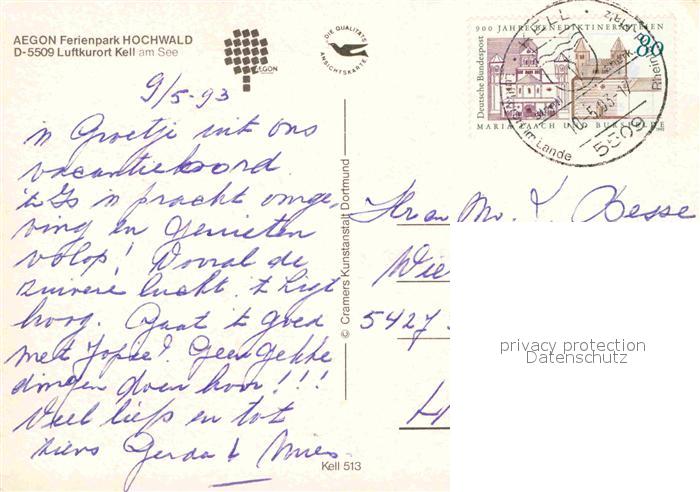 AEGON Ferienpark HOCHWALD
D-5509 Luftkurort Kell am See
AEGON
DIE QUALITÄTS
ANSICHTSKARTE
900 JAHRE BENEDIKTINERABTEIEN
80
Deutsche Bundespost
MARIA LAACH UND BURSFELDE
KELL
5509
9/5-93
'n Groetje uit ons
vacantieoord.
't Is 'n pracht omge,
ving en genieten
volop! Vooral de
zuivere lucht. 't ligt
hoog. Gaat 't goed
met Jopie? Geen gekke
dingen doen hoor!!!
Veel liefs en tot
ziens Gerda & Mies
Hr en Mv. Besse
Wie
5427
H
© Cramers Kunstanstalt Dortmund
Kell 513
privacy protection
Datenschutz